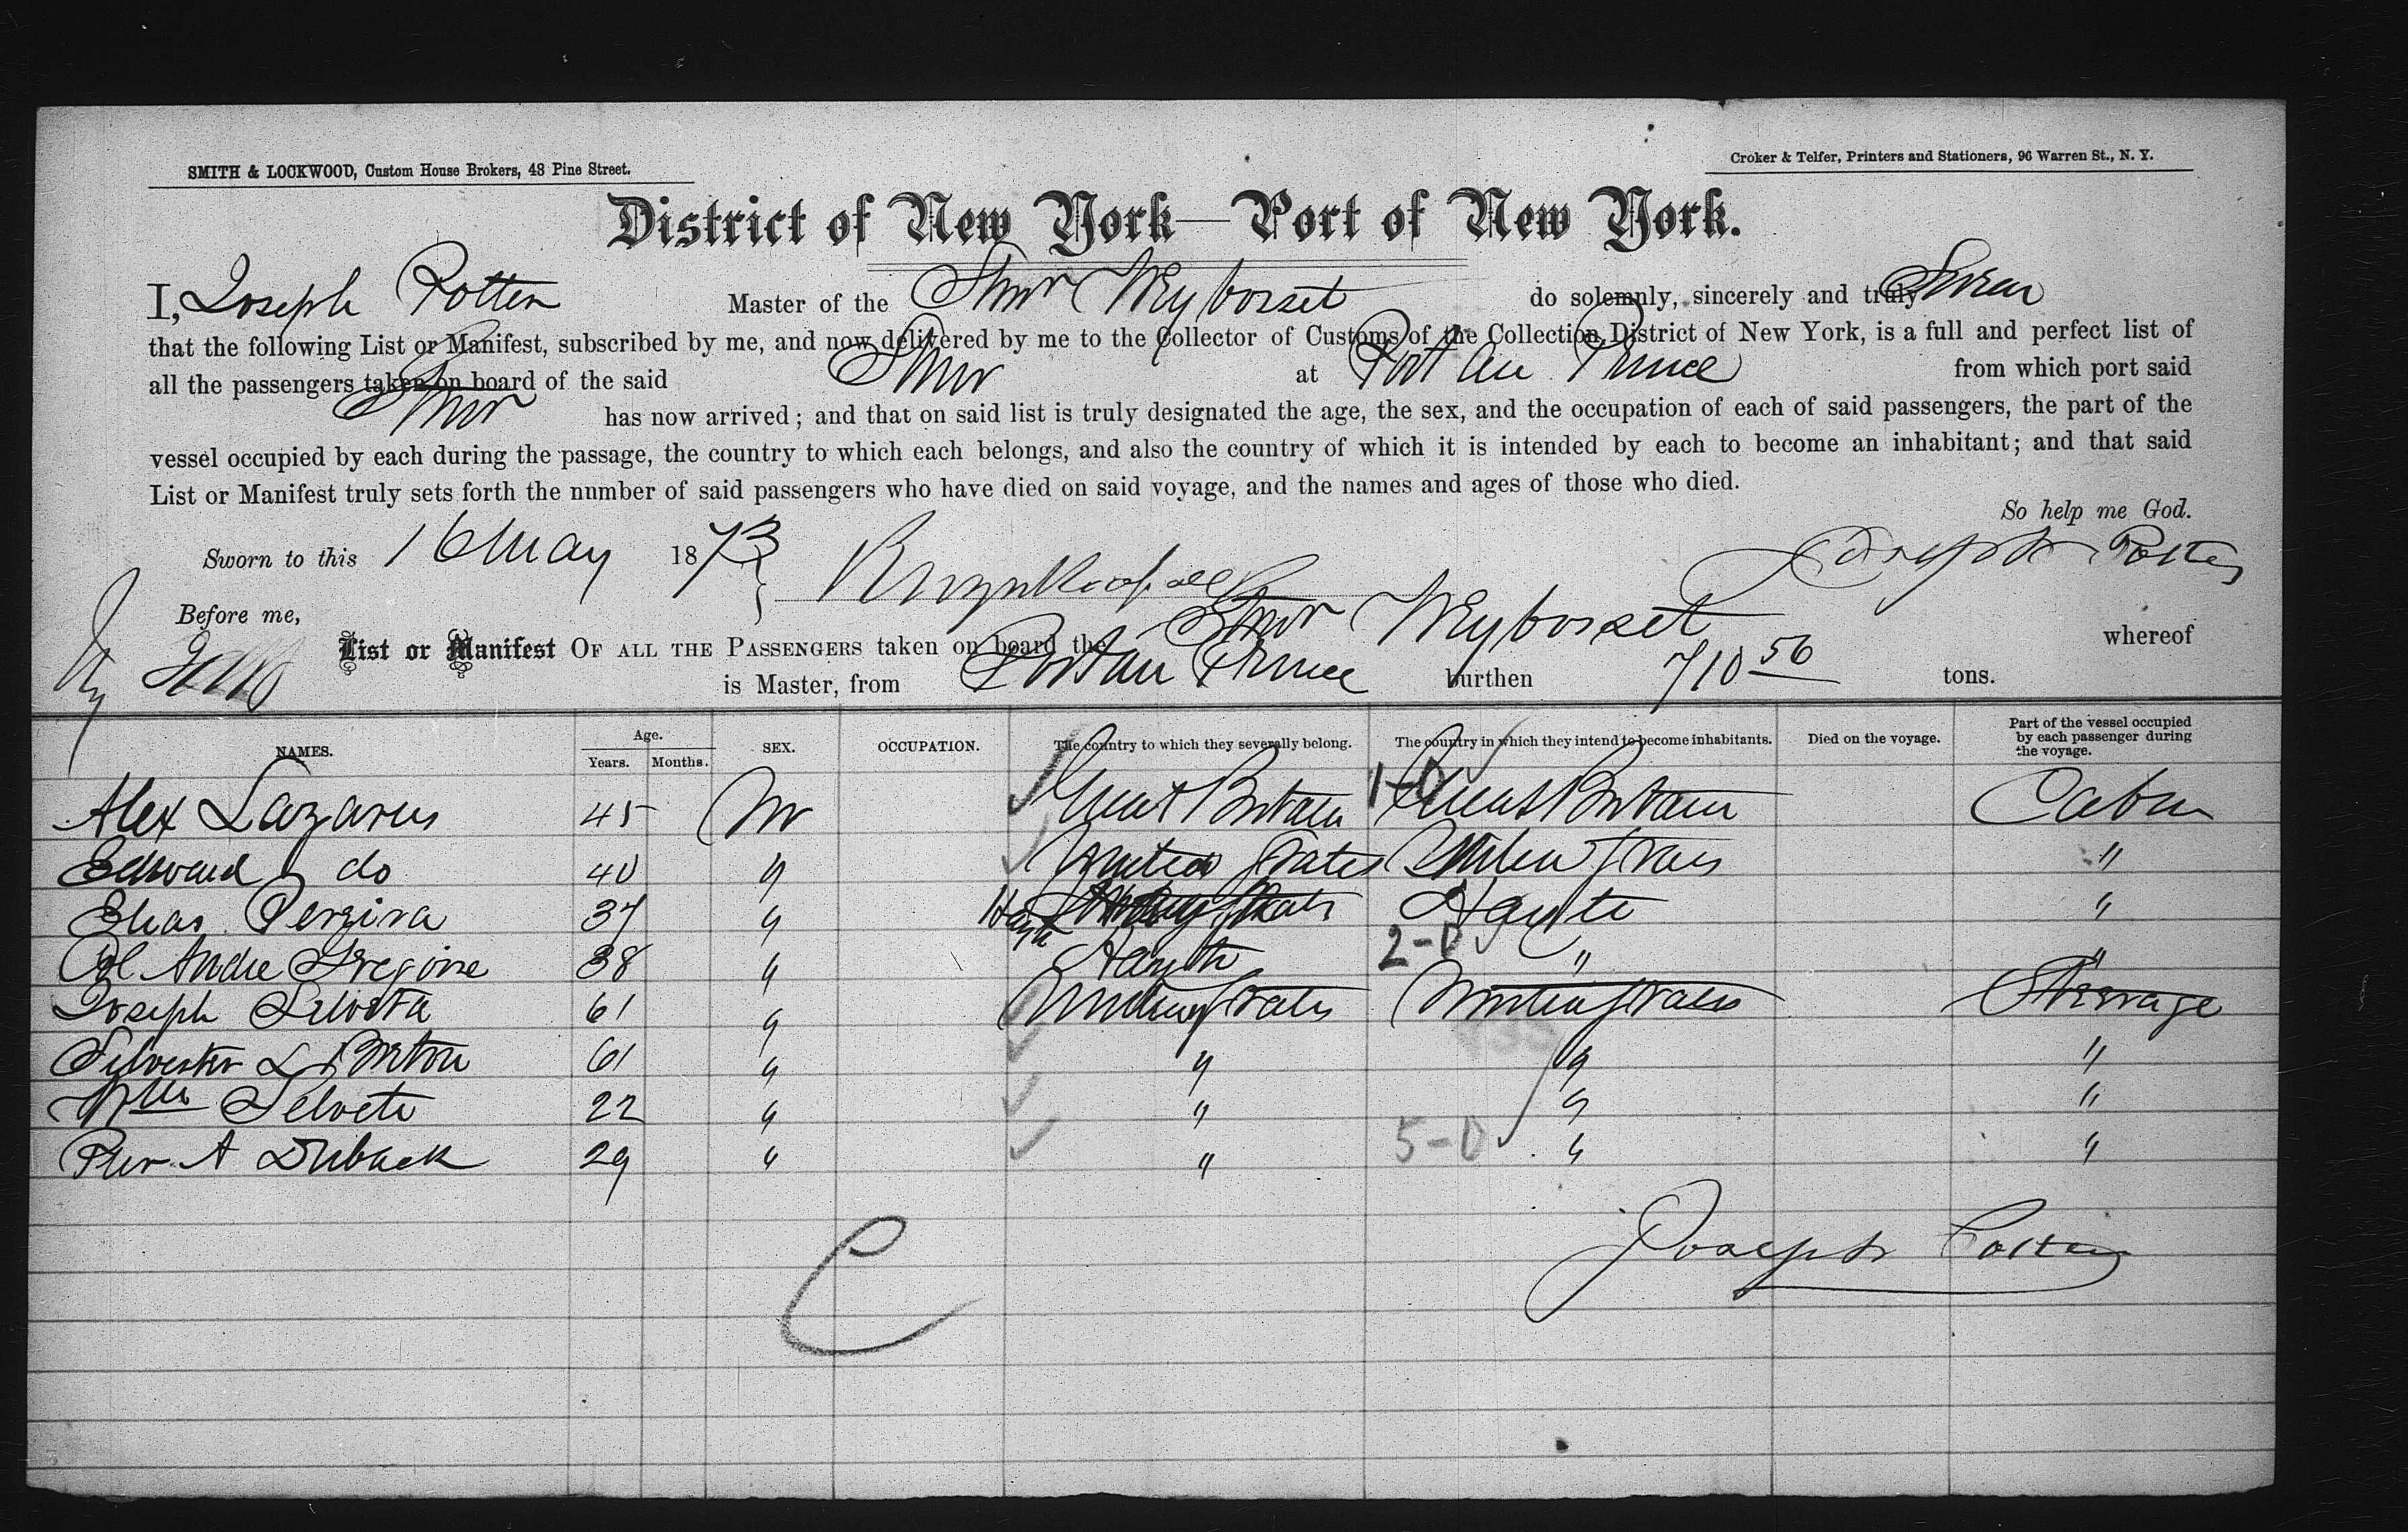 SMITH & LOCKWOOD, Custom House Brokers, 48 Pine Street.
Croker & Telfer, Printers and Stationers, 96 Warren St., N. Y.
District of New York—Port of New York.
I, Joseph Potter Master of the Stmr Weybosset do solemnly, sincerely and truly Swear
that the following List or Manifest, subscribed by me, and now delivered by me to the Collector of Customs of the Collection District of New York, is a full and perfect list of
all the passengers taken on board of the said Stmr at Port au Prince from which port said
Stmr has now arrived; and that on said list is truly designated the age, the sex, and the occupation of each of said passengers, the part of the
vessel occupied by each during the passage, the country to which each belongs, and also the country of which it is intended by each to become an inhabitant; and that said
List or Manifest truly sets forth the number of said passengers who have died on said voyage, and the names and ages of those who died.
So help me God.
Sworn to this 16 May 1873 Joseph Potter
Before me,
List or Manifest OF ALL THE PASSENGERS taken on board the Stmr Weybosset whereof
is Master, from Port au Prince burthen 710 56 tons.
NAMES. Age. Years. Months. SEX. OCCUPATION. The country to which they severally belong. The country in which they intend to become inhabitants. Died on the voyage. Part of the vessel occupied by each passenger during the voyage.
Alex Lazarus 45 M Great Britain 1-D Great Britain Cabin
Edward do 40 " United States United States "
Elias 37 " Hayti Hayti "
Andre Gregoire 38 " Hayti 2-D " "
Joseph 61 " United States United States Steerage
Silvester 61 " " " "
Wm 22 " " " "
A 29 " " 5-D " "
C
Joseph Potter